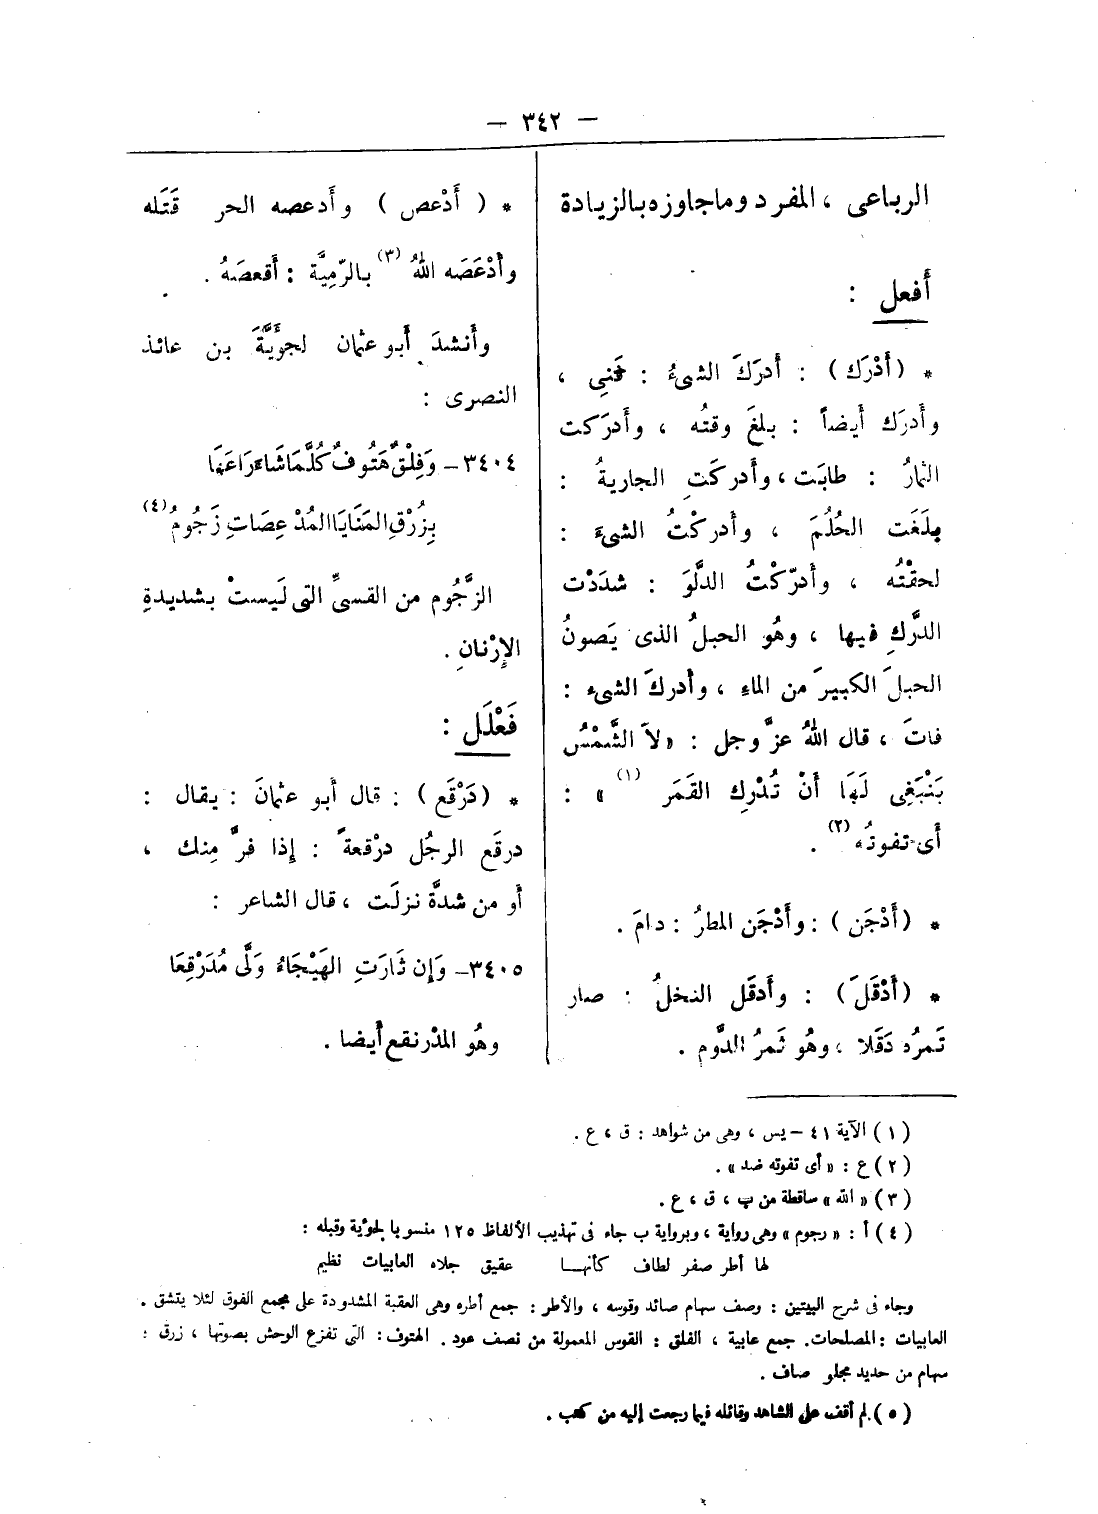 — ٣٤٢ —
الرباعى ، المفرد وما جاوزه بالزيادة
أَفعل :
* ( أَدْرَك ) : أَدرَكَ الشىءُ : فَنِى ،
وأَدرَك أَيضاً : بلغَ وقتُه ، وأَدرَكت
الثمارُ : طابَت ، وأَدركَتِ الجاريةُ :
بلَغَت الحُلُمَ ، وأَدركْتُ الشىءَ :
لحقْتُه ، وأَدرَكْتُ الدَّلْوَ : شدَدْت
الدَّرَك فيها ، وهُو الحبلُ الذى يَصونُ
الحبلَ الكبيرَ من الماءِ ، وأَدركَ الشىء :
فاتَ ، قال اللهُ عزَّ وجل : « لاَ الشَّمْسُ
يَنْبَغِى لَهَا أَنْ تُدْرِك القَمَر (١) » :
أَى تفوتُه (٢) .
* ( أَدْجَن ) : وأَدْجَن المطرُ : دامَ .
* ( أَدْقَلَ ) : وأَدقَل النخلُ : صار
تَمرُه دَقَلا ، وهُو ثَمرُ الدَّوم .
* ( أَدْعَص ) وأَدعصه الحر قَتَله
وأَدْعَصَه اللهُ (٣) بالرّمِيَّة : أَقعصَهُ .
وأَنشدَ أَبو عثمان لجوَيَّةَ بن عائذ
النصرى :
٣٤٠٤ – وَفِلْقٌ هَتُوفٌ كُلَّمَا شَاءَ رَاعَهَا
بِزُرْقِ المَنَايَا المُدْعِصَاتِ زَجُومُ (٤)
الزَّجُوم من القسىِّ التى لَيستْ بشديدةِ
الإِرْنانِ .
فَعْلَل :
* ( دَرْقَع ) : قال أَبو عثمانَ : يقال :
درقَع الرجُل درْقعةً : إِذا فرَّ مِنك ،
أَو من شدَّة نزلَت ، قال الشاعر :
٣٤٠٥ – وَإِن ثَارَتِ الهَيْجَاءُ وَلَّى مُدَرْقِعَا
وهُو المدْرنقع أَيضا .
( ١ ) الآية ٤١ – يس ، وهى من شواهد : ق ، ع .
( ٢ ) ع : « أى تفوته ضد » .
( ٣ ) « الله » ساقطة من ب ، ق ، ع .
( ٤ ) أ : « رجوم » وهى رواية ، وبرواية ب جاء فى تهذيب الألفاظ ١٢٥ منسوبا لجؤية وقبله :
لها أطر صفر لطاف كأنهـــا عقيق جلاه العابيات نظيم
وجاء فى شرح البيتين : وصف سهام صائد وقوسه ، والأطر : جمع أطره وهى العقبة المشدودة على مجمع الفوق لئلا يتشق .
العابيات : المصلحات . جمع عابية ، الفلق : القوس المعمولة من نصف عود . الهتوف : التى تفزع الوحش بصوتها ، زرق :
سهام من حديد مجلو صاف .
( ٥ ) لم أقف على الشاهد وقائله فيما رجعت إليه من كتب .